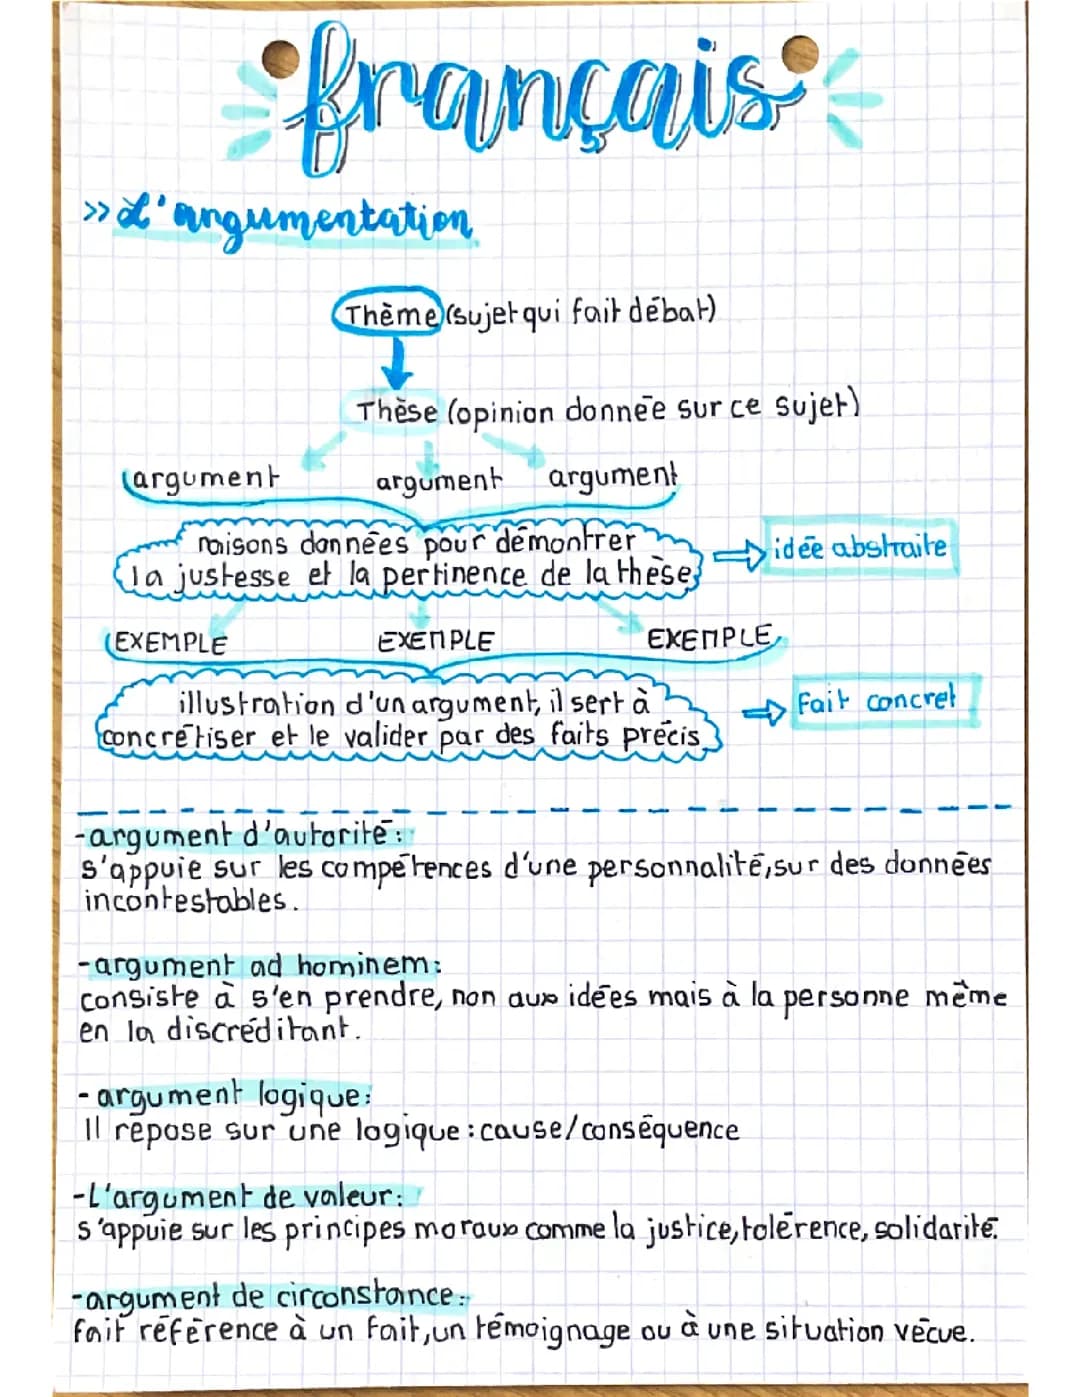 français
>> L'argumentation
Thème (sujet qui fait débat)
Thèse (opinion donnée sur ce sujet)
argument argument argument
raisons données pour démontrer
la justesse et la pertinence de la thèse
idée abstraite
EXEMPLE EXEMPLE EXEMPLE
illustration d'un argument, il sert à
concrétiser et le valider par des faits précis
Fait concret
-argument d'autorité:
s'appuie sur les compétences d'une personnalité, sur des données
incontestables.
-argument ad hominem:
consiste à s'en prendre, non aux idées mais à la personne même
en la discréditant.
- argument logique:
Il repose sur une logique : cause/conséquence
-L'argument de valeur:
s'appuie sur les principes moraux comme la justice, tolérence, solidarité.
-argument de circonstance:
fait référence à un fait, un témoignage ou à une situation vécue.